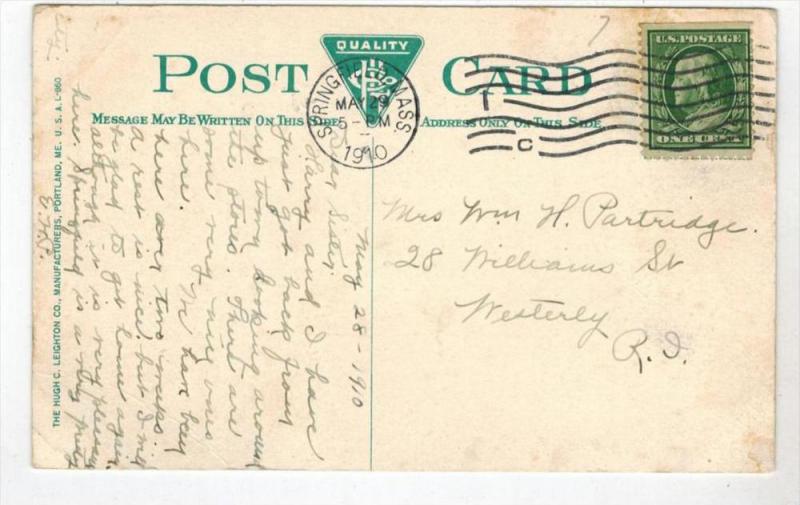 QUALITY
POST CARD
MESSAGE MAY BE WRITTEN ON THIS SIDE
ADDRESS ONLY ON THIS SIDE
SPRINGFIELD MASS
MAY 29
5-PM
1910
C
U.S. POSTAGE
ONE CENT
THE HUGH C. LEIGHTON CO., MANUFACTURERS, PORTLAND, ME. U. S. A. L-960
May 28-1910
Dear Sister,
Harry and I have
just got back from
up town looking around
the stores. There are
some very nice ones
here. We have been
here over two weeks.
a rest is nice. but I will
be glad to get home again.
although it is very pleasant
here. Springfield is a very pretty
city.
Mrs Wm H. Partridge.
28 Williams St
Westerly
R.I.